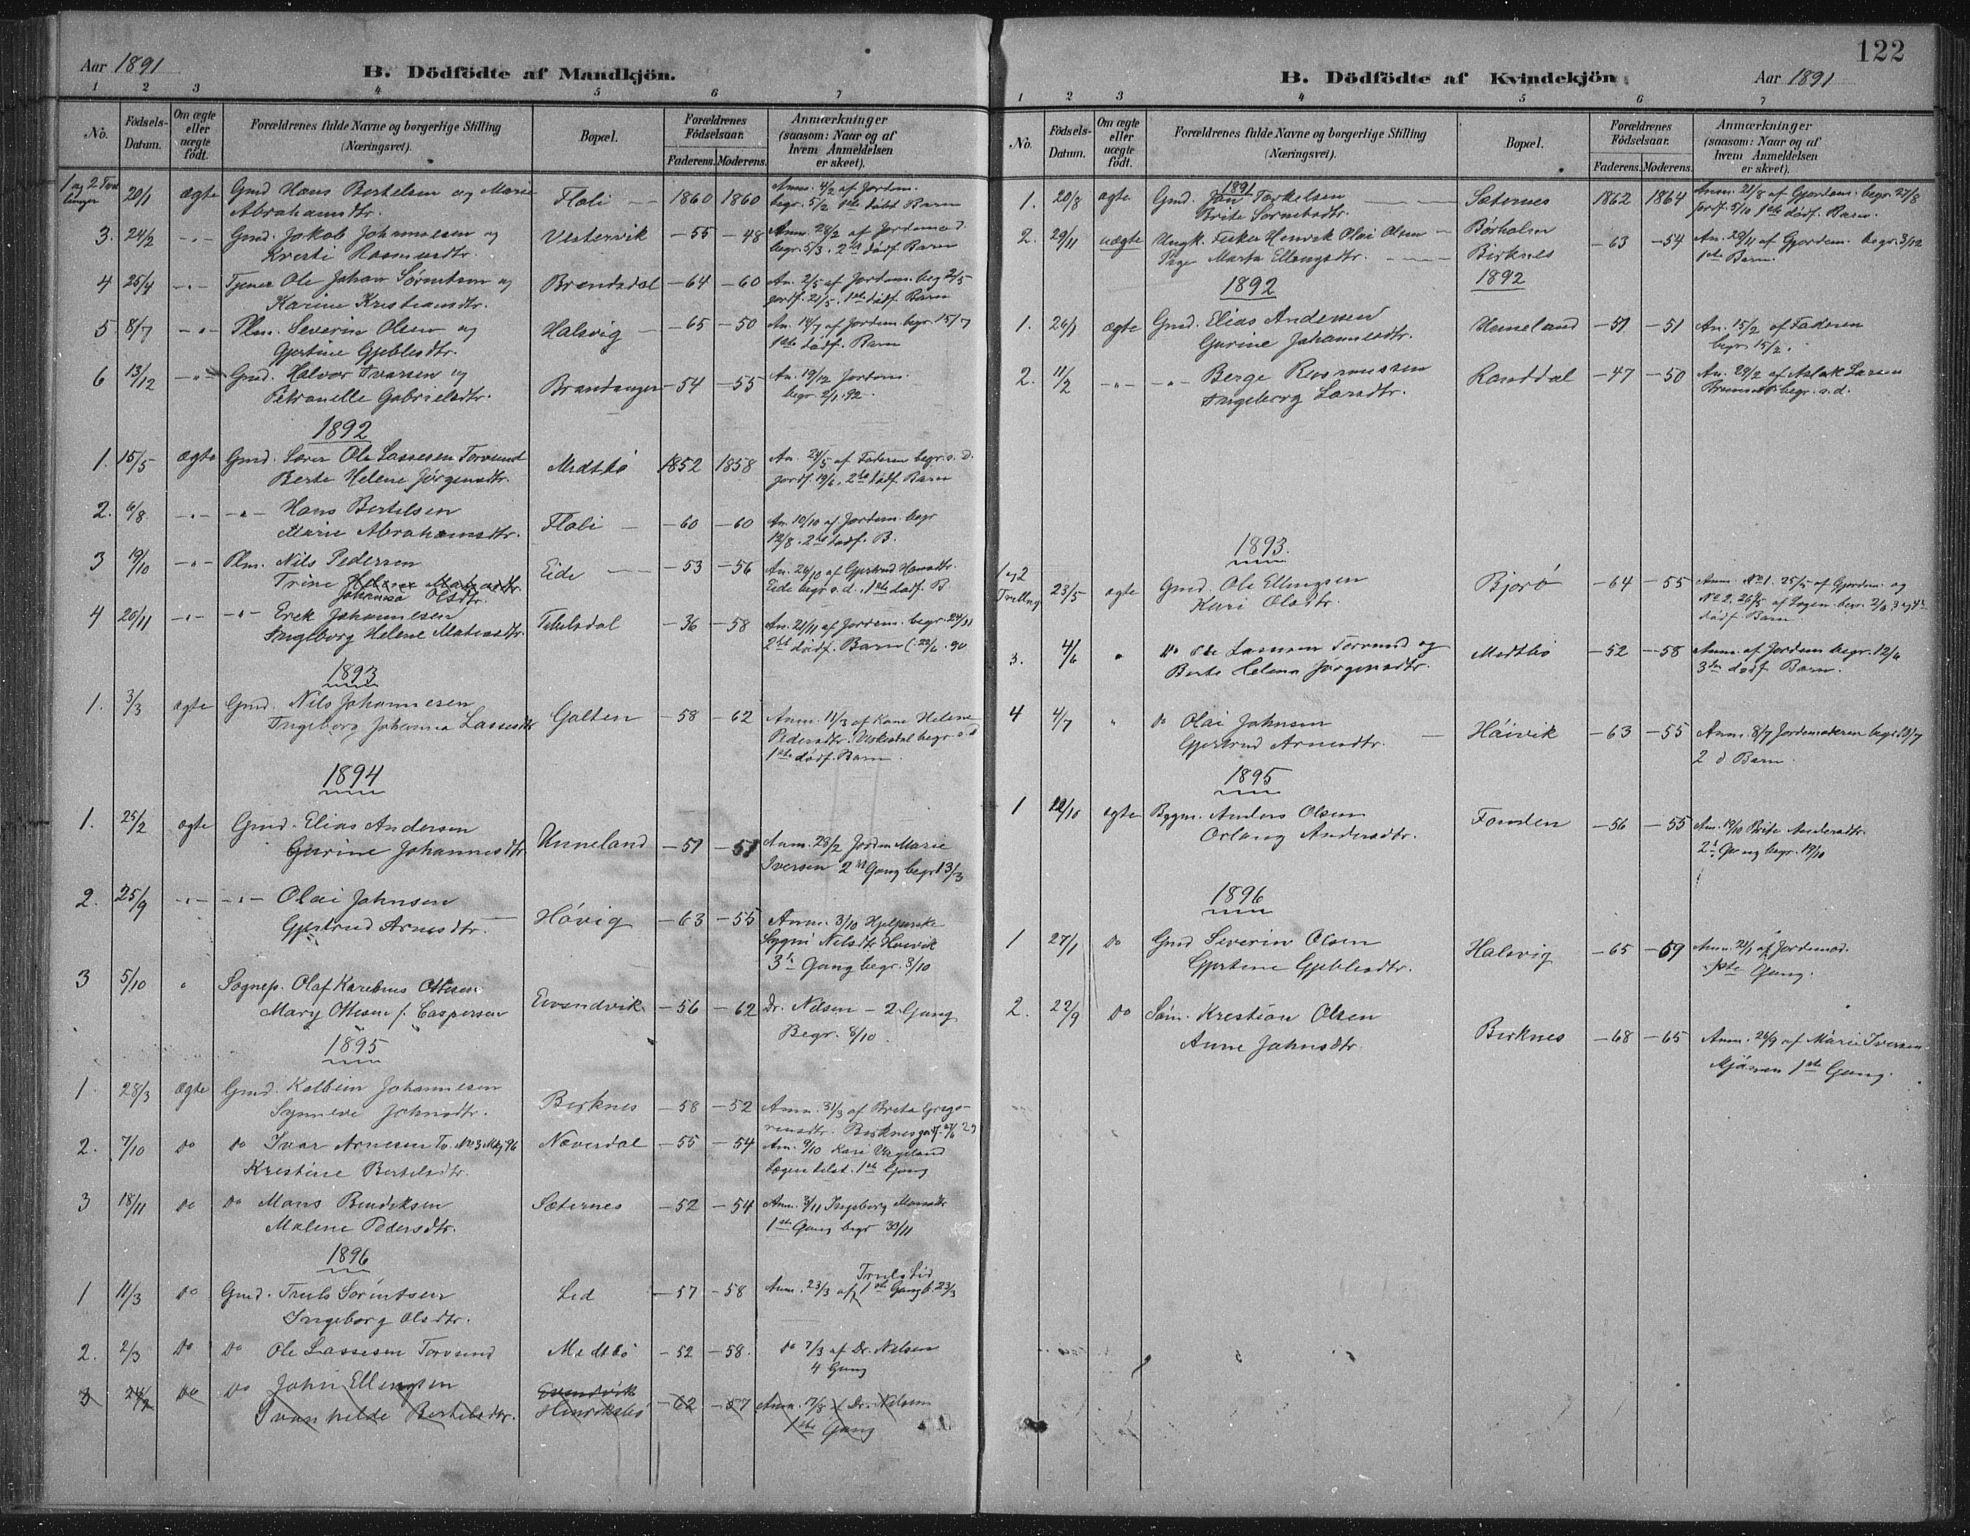 Aar 1891
B. Dödfödte af Mandkjön.
1 2 3 4 5 6 7
No.
Födsels-Datum.
Om ægte eller uægte født.
Forældrenes fulde Navne og borgerlige Stilling (Næringsvei).
Bopæl.
Forældrenes Födselsaar.
Faderens. Moderens.
Anmærkninger (saasom: Naar og af hvem Anmeldelsen er skeet).
1 og 2 20/1 ægte Gmd Hans Bertelsen og Marie Floli 1860 1860 Anm. 4/2 af Jordem.
Abrahamsdtr. begr. 5/2 1ste død Barn
3. 24/2 -"- Gmd. Jakob Johannesen og Vestervik -55 -48 Anm. 28/2 af Jordemod.
Kristi Rasmusdtr. begr. 5/3. 2det dødf. Barn
4 25/4 -"- Tjener Ole Johan Sørentsen og Brendsdal -64 -60 An. 2/5 af Jordem. beg 2/5
Karine Kristiansdtr. jordf. 21/5. 1ste dødf. Barn
5 8/7 -"- Plm. Severin Olsen og Halsvig -65 -50 An. 14/7 af Jordem begr. 15/7
Gjertine Gjeblesdtr. 1ste dødf. Barn
6 13/12 -"- Gmd. Halvor Ivarsen og Brandanger -54 -55 An. 19/12 Jordem.
Petronelle Gabrielsdtr. begr. 2/1.92.
1892
1. 15/5 ægte Gmd. Ole Lassesen Torvund Medtbø 1852 1858 An. 24/5 af Faderen begr. s.d.
Berte Helene Jørgensdtr. jordf. 19/6. 2det dødf. Barn
2. 6/8 -"- -"- Hans Bertelsen Floli -60 -60 An. 10/10 af Jordem. begr
Marie Abrahamsdtr. 12/8. 2det dødf. B.
3 19/10 -"- Plm. Nils Pedersen Eide -53 -56 An. 26/10 af Gjertrud Hansdtr.
Trine Johanna Olsdtr. Eide begr s.d. 1ste dødf. B
4 20/11 -"- -"- Erik Johannesen -36 -58 An. 21/11 af Jordem. begr. 24/11
Ingeborg Helene Matiasdtr. 2det dødf. Barn (22/6.90
1893
1. 3/3 ægte Gmd. Nils Johannesen Galten -58 -62 Anm. 11/3 af Kone Helene
Ingeborg Johanna Lassesdtr Pedersdtr. begr. s.d
1ste dødf. Barn
1894
1. 25/2 ægte Gmd. Elias Andersen Unneland -51 -51 Anm. 28/2 Jordem Marie
Gurine Johannesdtr Iversen 2den Gang begr 13/3
2. 25/9 -"- -"- Olai Johnsen Høvig -63 -55 Anm. 3/10
Gjertrud Arnesdtr. Nilsdtr
3die Gang begr. 3/10
3 5/10 " Sognep. Olaf Karelius Ottesen Evendvik -56 -62 Dr. Nilsen - 2 Gang
Mary Ottesen f. Caspersen Begr. 8/10
1895
1. 28/3 ægte Gmd. Kolbein Johannesen Birknes -58 -52 Anm. 31/3 af Brita Grego-
Synneve Johnsdtr. riusdtr. Birknes
2. 7/10 do do Ivar Arnesen Næverdal -55 -54 An. 9/10 Kari
Kristine Bertelsdtr. Lægen tilst. 1ste Gang
3 18/11 do do Mons Bendiksen Sæternes -52 -54 Anm. Ingeborg Monsdtr
Malene Pedersdtr. 1ste Gang begr 30/11
1896
Truls Lid
1 11/3 do Gmd. Truls Sørentsen Lid -57 -58 Anm. 23/3 af 1ste Gang b. 23/3
Ingeborg Olsdtr.
2. 2/3 do do Ole Lassesen Torvund Medtbø -52 -58. do 7/3 af Dr. Nilsen
4 Gang
3 do do John Ellingsen Evendvik Henriksbø -62 -57 Anm. 17/8 Dr. Nilsen
Bertelsdtr. 1ste Gang
122
B. Dödfödte af Kvindekjön
Aar 1891
1 2 3 4 5 6 7
No.
Födsels-Datum.
Om ægte eller uægte födt.
Forældrenes fulde Navne og borgerlige Stilling (Næringsvei).
Bopæl.
Forældrenes Födselsaar.
Faderens. Moderens.
Anmærkninger (saasom: Naar og af hvem Anmeldelsen er skeet).
1891
1. 20/8 ægte Gmd. Jon Torkelsen Sæternes 1862 1864 Anm. 21/8 af Gjordem. begr. 27/8
Brite jordf. 4/10 1ste dødf. Barn.
2. 29/11 uægte Ungk. Fisker Henrik Olai Olsen Børholm -63 -54 An. 29/11 af Gjordem. begr. 3/12
Pige Marta Ellingsdtr. Birknes 1ste Barn.
1892 1892
1. 26/1 ægte Gmd. Elias Andersen Uneland -51 -51 An. 15/2 af Faderen
Gurine Johannesdtr. begr. 15/2.
2. 11/2 -"- -"- Berge Rasmussen Randdal -47 -50 An. 29/2 af Aslak Larsen
Ingeborg Larsdtr. begr. s.d.
1893.
1 og 2 Trelling 23/5 ægte Gmd. Ole Ellingsen Bjorø -64 -55 Anm. No 1. 25/5 af Gjordem. og
Kari Olsdtr. No 2. 26/5 af Lægen begr. 2/6
dødf. Barn.
3. 4/6 " do Ole Lassesen Torvund og Medtbø -52 -58 Anm. af Jordem begr. 12/6
Berte Helene Jørgensdtr. 3die dødf. Barn.
4 4/7 " do Olai Johnsen Høivik -63 -55 Anm. 8/7 Jordemoderen begr.
Gjertrud Arnesdtr. 2 d Barn.
1895
1 12/10 ægte Bygm. Anders Olsen Fonden -56 -55 Anm. 19/10 Brite Andersdtr.
Orlaug Andersdtr. 2d Gang begr. 19/10
1896
1 27/1 do Gmd Severin Olsen Halsvig -65 -59 Anm. af Jordemod.
Gjertine Gjeblesdtr. 1ste Gang.
2. 22/9 do Søm. Krestian Olsen Birknes -68 -65 Anm. 26/9 af Marie Iversen
Anne Johnsdtr. Mjømen 1ste Gang.